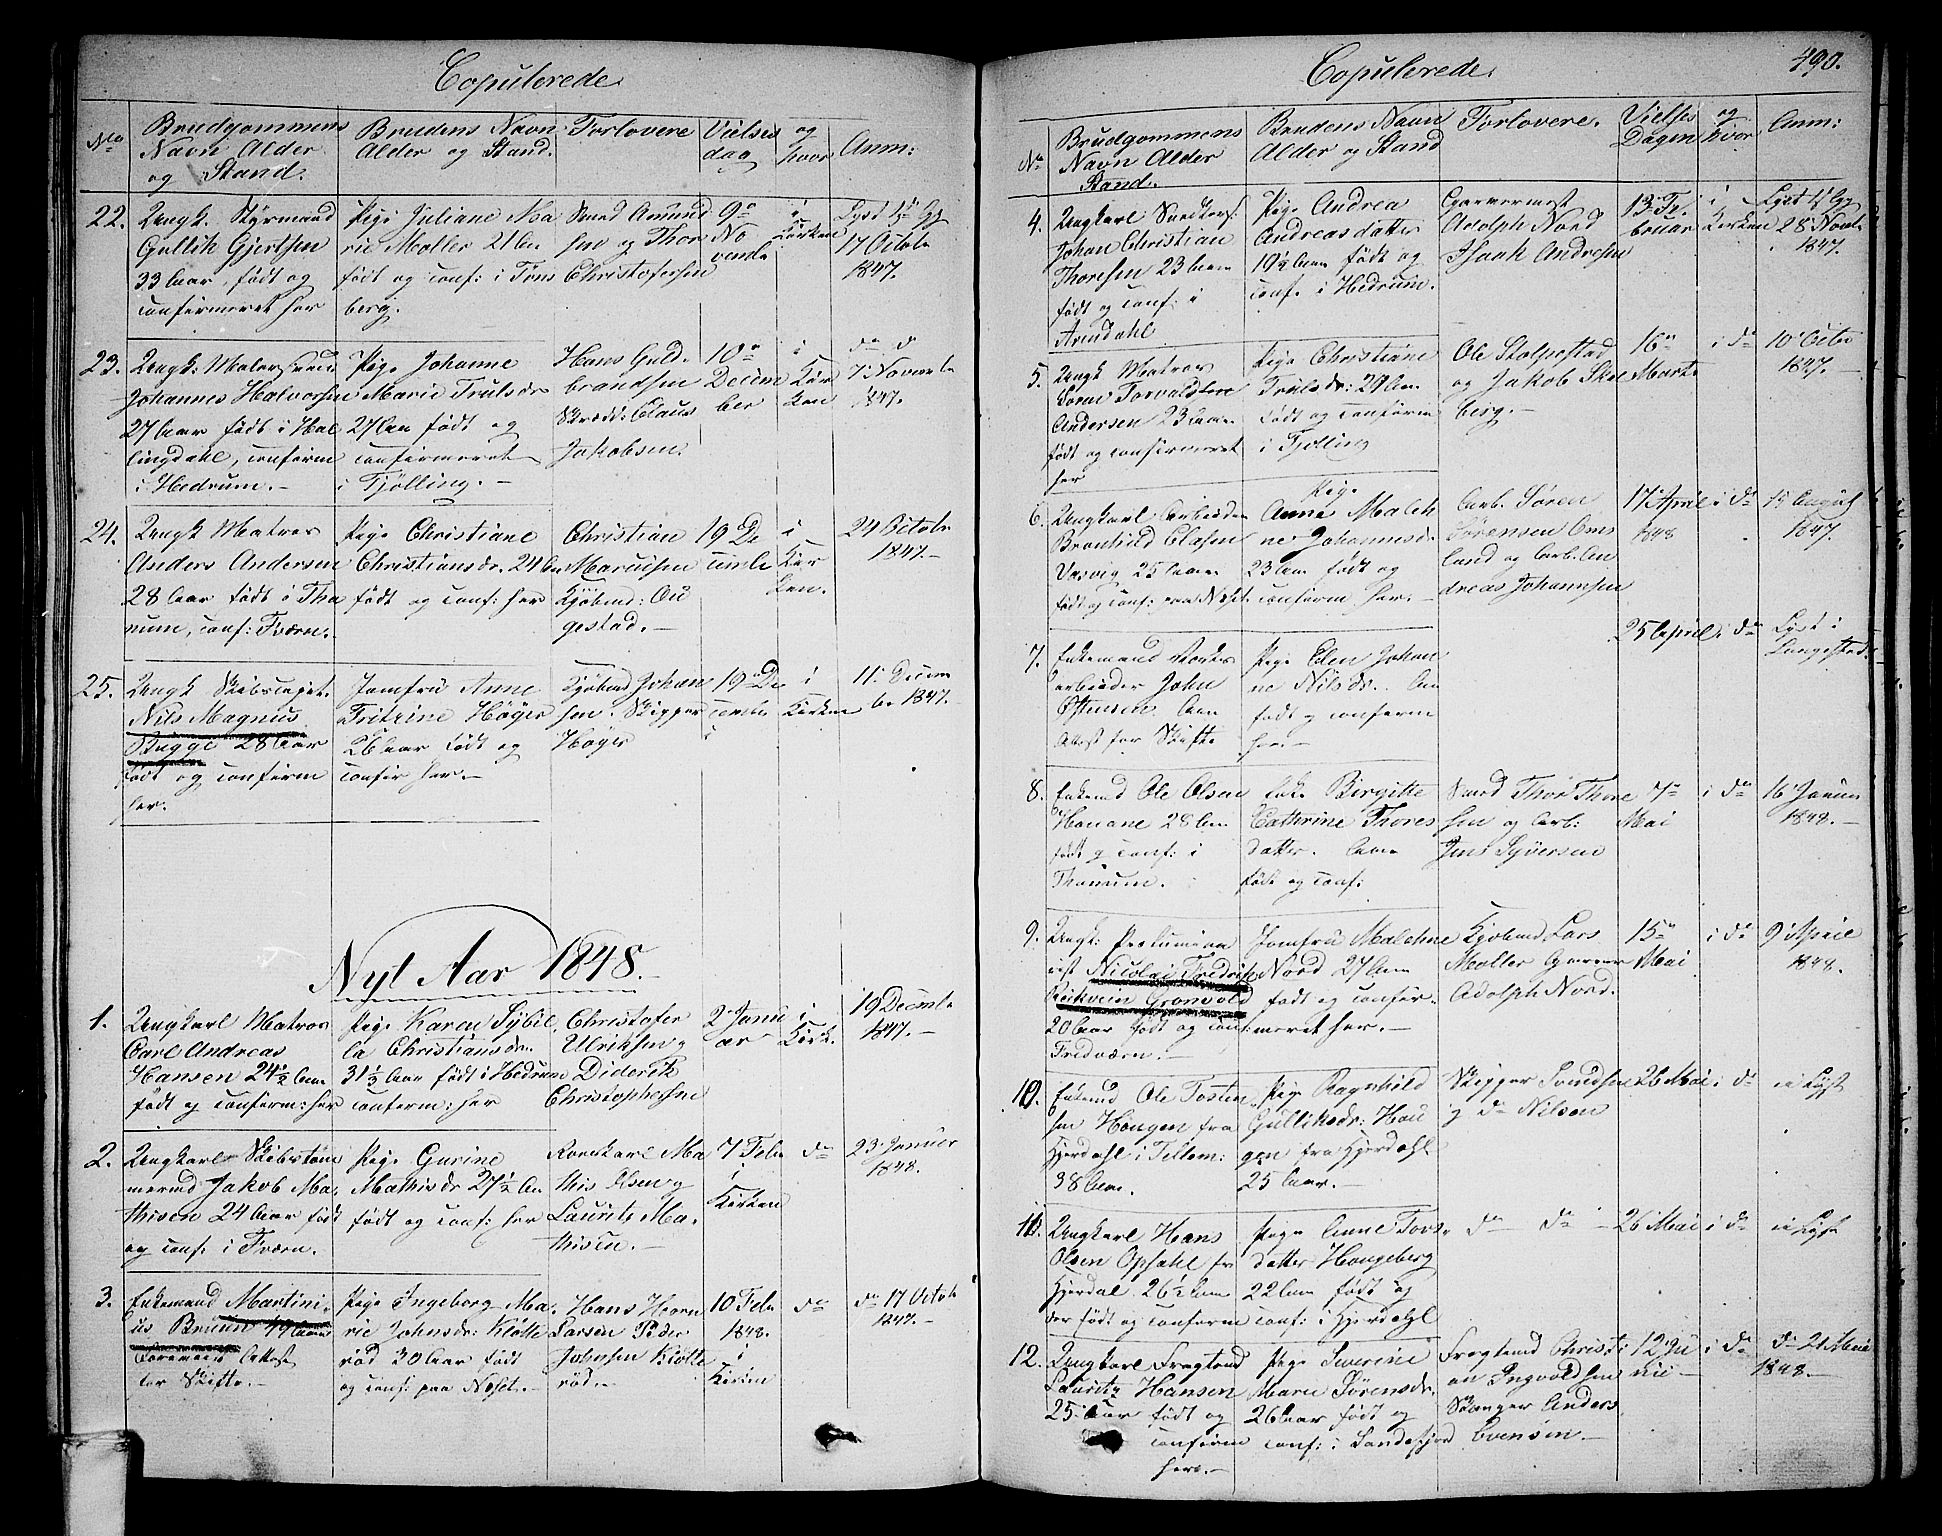 Copulerede
No
Brudgommens
Navn Alder
og Stand.
Brudens Navn
Alder og Stand.
Forlovere
Vielses
dag
og
hvor
Anm:
22. Ungk. Styrmand
Gullik Gjertsen
33 Aar, født og
confirmeret her
Pige Juliane Ma
rie Møller 21 Aar
født og conf: i Tøns
berg.
Svend Amund
sen og Thor
Christofersen
9de
No
vembr
i
Kirken
Lyst 1ste Gg
17 Octobr
1847.
23. Ungk: Maler
Johannes Halvorsen
27 Aar født i Hal
lingdahl, confirm
i Hedrum.
Pige Johanne
Marie Trulsdr
27 Aar født og
confirmeret
i Tjølling.
Hans Guld-
brandsen
Skrædd: Claus
Jakobsen.
10de
Decem
ber
i
Kir
ken
do do
7 Novembr
1847.
24. Ungk Matros
Anders Andersen
28 Aar født i Tha
num, conf: Fværn.
Pige Christiane
Christiansdr. 24 Aar
født og conf: her
Christian
Marcussen
Kjøbmd: Au
gestad.
19 De
cembr
i
Kir
ken.
24 Octobr
1847.
25. Ungk Skibscapt.
Nils Magnus
Bugge 28 Aar
født og confirm
her.
Jomfru Anne
Fritrine Høyer
26 Aar født og
confir her.
Kjøbmd Johan
sen. Skipper
Høyer
19 De
cembr
i
Kirken
11 Decem
br 1847.
Nyt Aar 1848.
1. Ungkarl Matros
Carl Andreas
Hansen 24½ Aar
født og confirm: her
Pige Karen Sybil
la Christiansdr.
31½ Aar født i Hedrum
confirm: her
Christofer
Ulriksen og
Diderik
Christophersen
2 Janu
ar
i
Kirk.
19 Decembr
1847.
2. Ungkarl Skibstøm
mermd Jakob Ma
thisen 24 Aar født
og conf: i Fværn.
Pige Gurine
Mathisdr 27½ Aar
født og conf: her
Ma
this Olsen og
Lauritz Ma
thisen.
7 Febr
i
Kirken
do
23 Januar
1848.
3. Enkemand Martini
us Bruun 49 Aar
Attest
for Skifte.
Pige Ingeborg Ma
rie Johnsdr: Kløtte
rød 30 Aar født
og conf: paa Næset.
Hans Horn
Larsen Peder
Johnsen Kløtte
rød.
10 Febr
1848.
i
Kirken
do
do 17 Octobr
1847.
Copulerede.
490.
No
Brudgommens
Navn Alder
Stand.
Brudens Navn
Alder og Stand
Forlovere.
Vielses
Dagen
og
hvor
Anm:
4. Ungkarl
Johan Christian
Thoresen 23 Aar
født og conf: i
Arendahl
Pige Andrea
Andreasdatter
19½ Aar født og
conf. i Hedrum.
Garvermest
Adolph Nord
Isaak Andresen
13 Fe
bruar
i
Kirken
Lyst 1ste Gg
28 Novbr
1847.
5. Ungk Matros
Søren Torvaldsen
Andersen 23 Aar
født og confirmeret
her
Pige Christiane
Trulsdr: 27 Aar
født og confirm
i Tjølling
Ole Stolpestad
og Jakob Skee
berg.
16de
Marts
i do
10 Octbr
1847.
6. Ungkarl Arbeider
Brønhild Olasen
Varvig 25 Aar
født og conf: paa Næset.
Pige
Anne Maleh
ne Johannesd.
23 Aar født og
confirm her.
Arb. Søren
Sørensen Oms
land og Arb. An
dreas Johannsen
17 April
1848
i do
15 August
1847.
7. Enkemand
arbeider John
Østensen Aar
Attest for Skifte
Pige Elen Johan
ne Nilsdr. Aar
født og confirm
her.
25 April
i do
Lyst i
Langestad.
8. Enkemd Ole Olsen
Hauane 28 Aar
født og conf: i
Thanum.
Enke Birgitte
Cathrine Thores
datter. Aar
født og conf:
Svend Thor Thore
sen og Arb:
Jens Syversen
7de
Mai
i do
16 Januar
1848.
9. Ungk:
Nicolai Fredrik
Grønvold
20 Aar født og conf:
Fredværn.
Jomfru Malehne
Nord 27 Aar
født og confir
meret her.
Kjøbmd Lars
Møller Garver
Adolph Nord.
15de
Mai
i do
9 April
1848.
10. Enkemd Ole Tosten
sen Haugen fra
Hjerdahl i Tellem:
38 Aar.
Pige Ragnhild
Gulliksdr: Hau
gen fra Hjerdahl
25 Aar.
Skipper Svendsen
og do Nilsen
26 Mai
i do
ei Lyst
11. Ungkarl Hans
Olsen Opdahl fr
Hjerdal 26½ Aar
der født og confirm
Pige Anne Tovs
datter Haugeberg
22 Aar født og
conf: i Hjerdahl
do do
26 Mai
i do
ei Lyst
12. Ungkarl Fragtmd
Lauritz Hansen
25 Aar født og
confirm
her.
Pige Severine
Marie Sørensdr.
26 Aar født og
conf: i Sandefjord
Fragtmd Christi
an Ingvoldsen
Stanger Anders
Evensen.
12 Ju
nii
i do
do 21 Mai
1848.